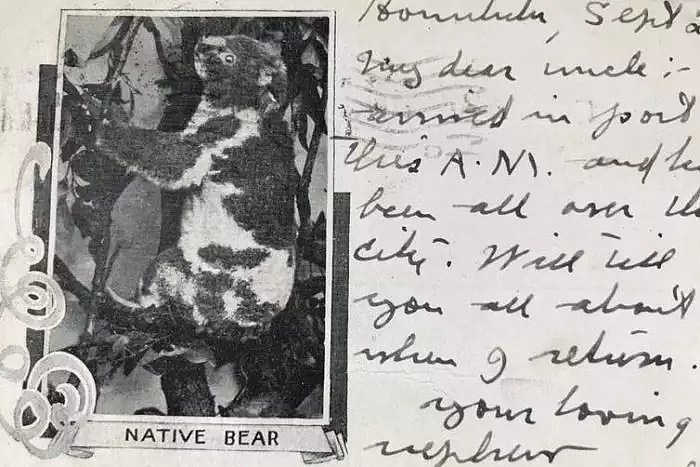 Honolulu, Sept 2
My dear uncle :-
arrived in port
this A.M. and
been all over
city. Will tell
you all about
when I return.
your loving
nephew
NATIVE BEAR